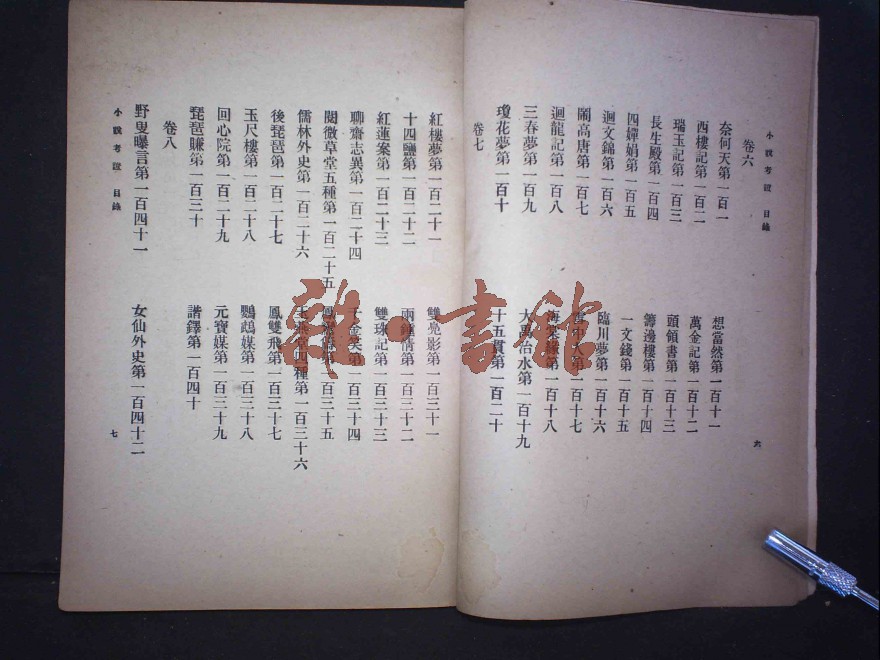 小說考證 目錄
卷六
奈何天第一百一
想當然第一百十一
西樓記第一百二
萬金記第一百十二
瑞玉記第一百三
頭領書第一百十三
長生殿第一百四
籌邊樓第一百十四
四嬋娟第一百五
一文錢第一百十五
迴文錦第一百六
臨川夢第一百十六
鬧高唐第一百七
中人第一百十七
迴龍記第一百八
海第一百十八
三春夢第一百九
大禹治水第一百十九
瓊花夢第一百十
十五貫第一百二十
卷七
六
紅樓夢第一百二十一
雙影第一百三十一
十四鹽第一百二十二
兩情第一百三十二
紅蓮案第一百二十三
雙珠記第一百三十三
聊齋志異第一百二十四
千金笑第一百三十四
閱微草堂五種第一百二十五
第一百三十五
儒林外史第一百二十六
堂四種第一百三十六
後琵琶第一百二十七
鳳雙飛第一百三十七
玉尺樓第一百二十八
鸚鵡媒第一百三十八
回心院第一百二十九
元寶媒第一百三十九
琵琶賺第一百三十
諧鐸第一百四十
卷八
野叟曝言第一百四十一
女仙外史第一百四十二
小說考證 目錄
七
雜·書館